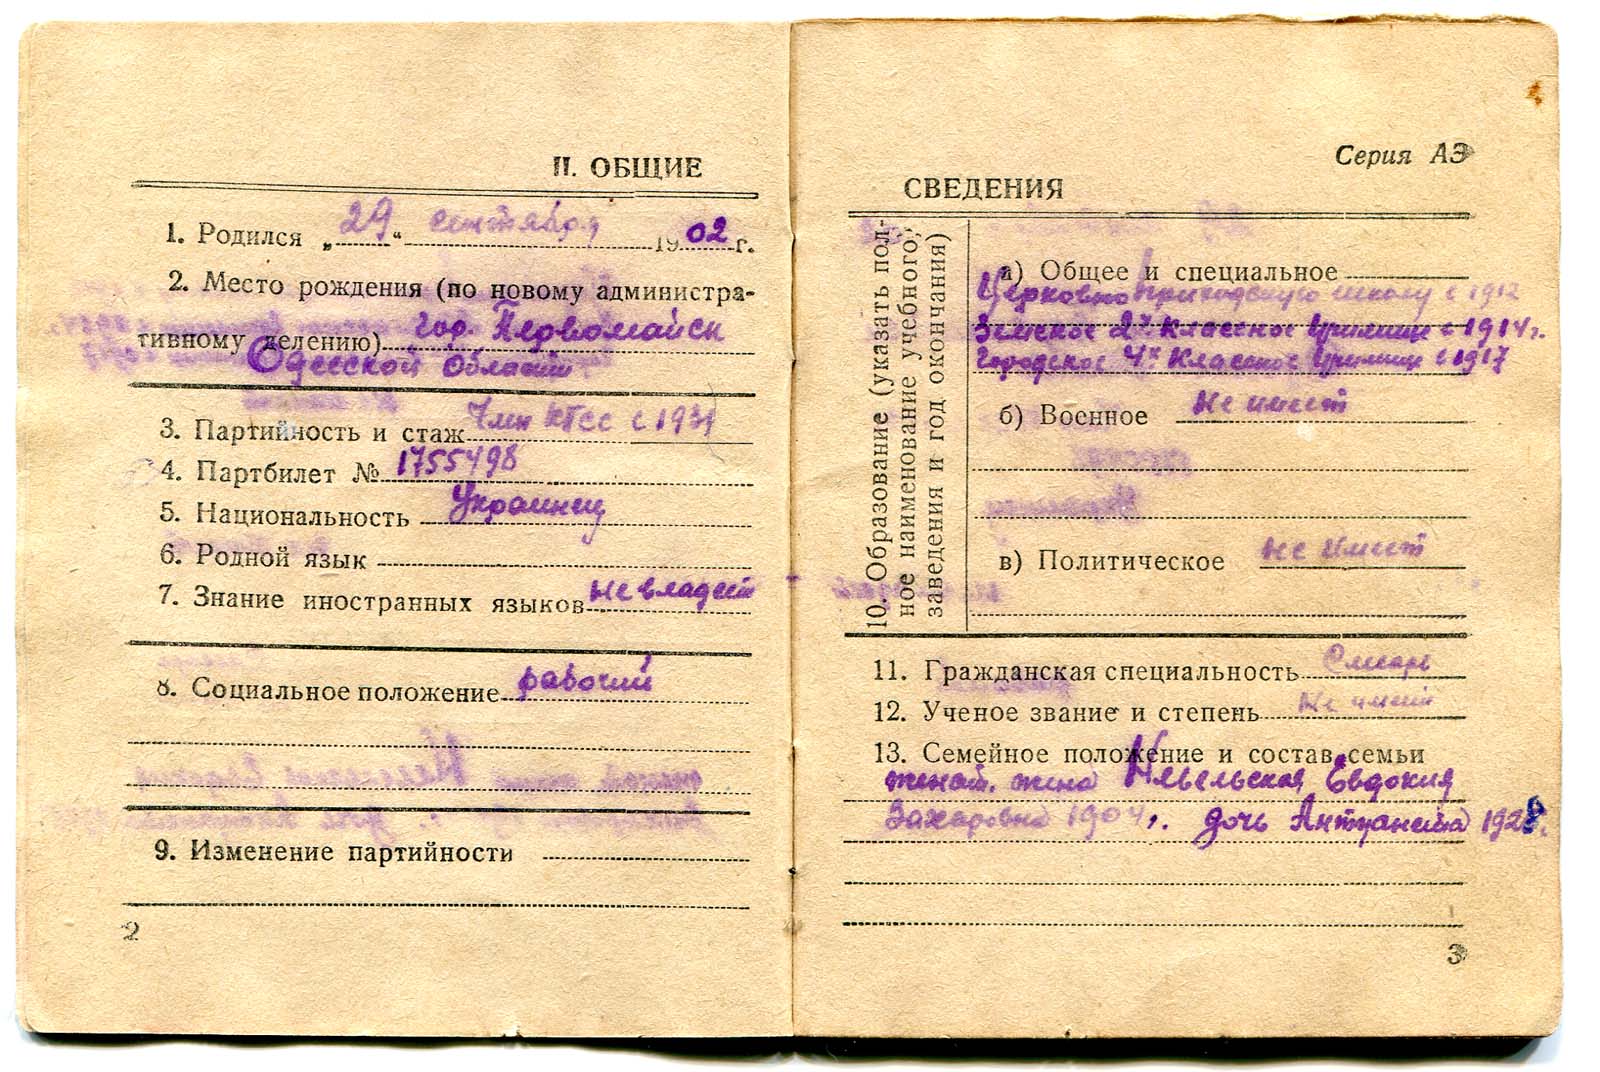 II. ОБЩИЕ
1. Родился „29“ сентября 1902 г.
2. Место рождения (по новому администра-
тивному делению) гор. Первомайск
Одесской области
3. Партийность и стаж Член КПСС с 1931
4. Партбилет № 1755498
5. Национальность Украинец
6. Родной язык
7. Знание иностранных языков не владеет
8. Социальное положение рабочий
9. Изменение партийности
2
Серия АЭ
СВЕДЕНИЯ
10. Образование (указать пол-
ное наименование учебного
заведения и год окончания)
а) Общее и специальное
Церковно приходскую школу с 1912
Земское 2х Классное училище с 1914 г.
Городское 4х Классное училище с 1917
б) Военное не имеет
в) Политическое не имеет
11. Гражданская специальность Слесарь
12. Ученое звание и степень Не имеет
13. Семейное положение и состав семьи
женат. жена Евдокия
Захаровна 1904 г. дочь 1928 г.
3